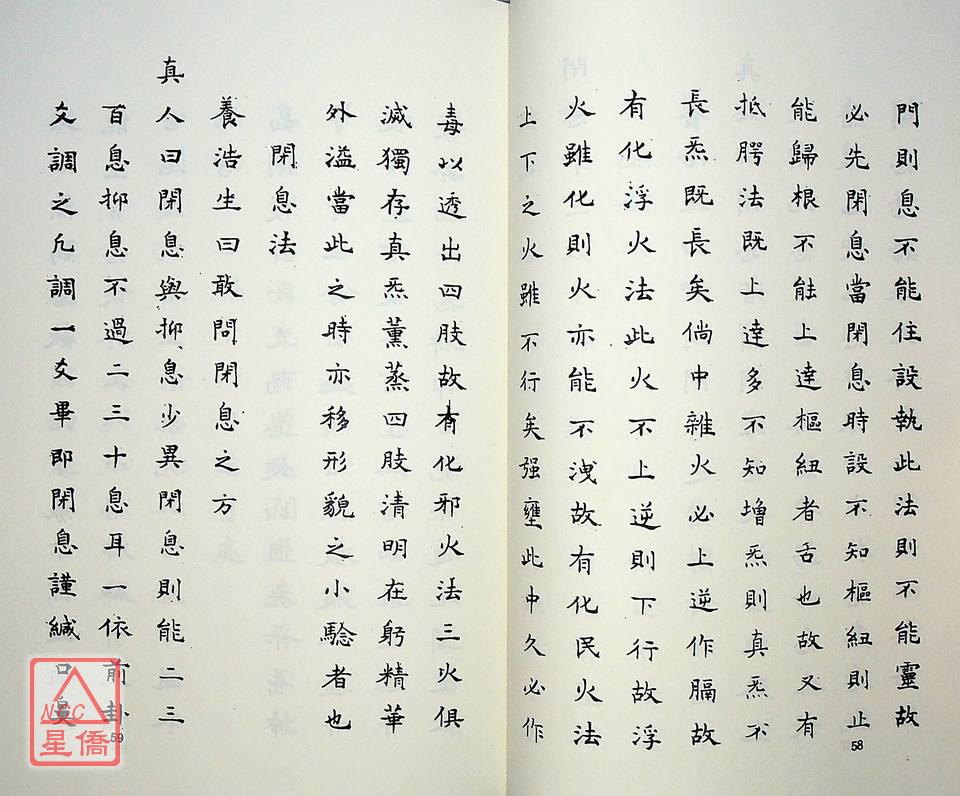 門則息不能住設執此法則不能靈故
必先閉息當閉息時設不知樞紐則止
能歸根不能上達樞紐者舌也故又有
抵腭法既上達多不知增炁則真炁不
長炁既長矣倘中雜火必上逆作膈故
有化浮火法此火不上逆則下行故浮
火雖化則火亦能不洩故有化民火法
上下之火雖不行矣强壅此中久必作
58
毒以透出四肢故有化邪火法三火俱
滅獨存真炁薰蒸四肢清明在躬精華
外溢當此之時亦移形貌之小驗者也
閉息法
養浩生曰敢問閉息之方
真人曰閉息與抑息少異閉息則能二三
百息抑息不過二三十息耳一依前卦
爻調之凡調一爻畢即閉息謹緘口
59
NCC
星僑